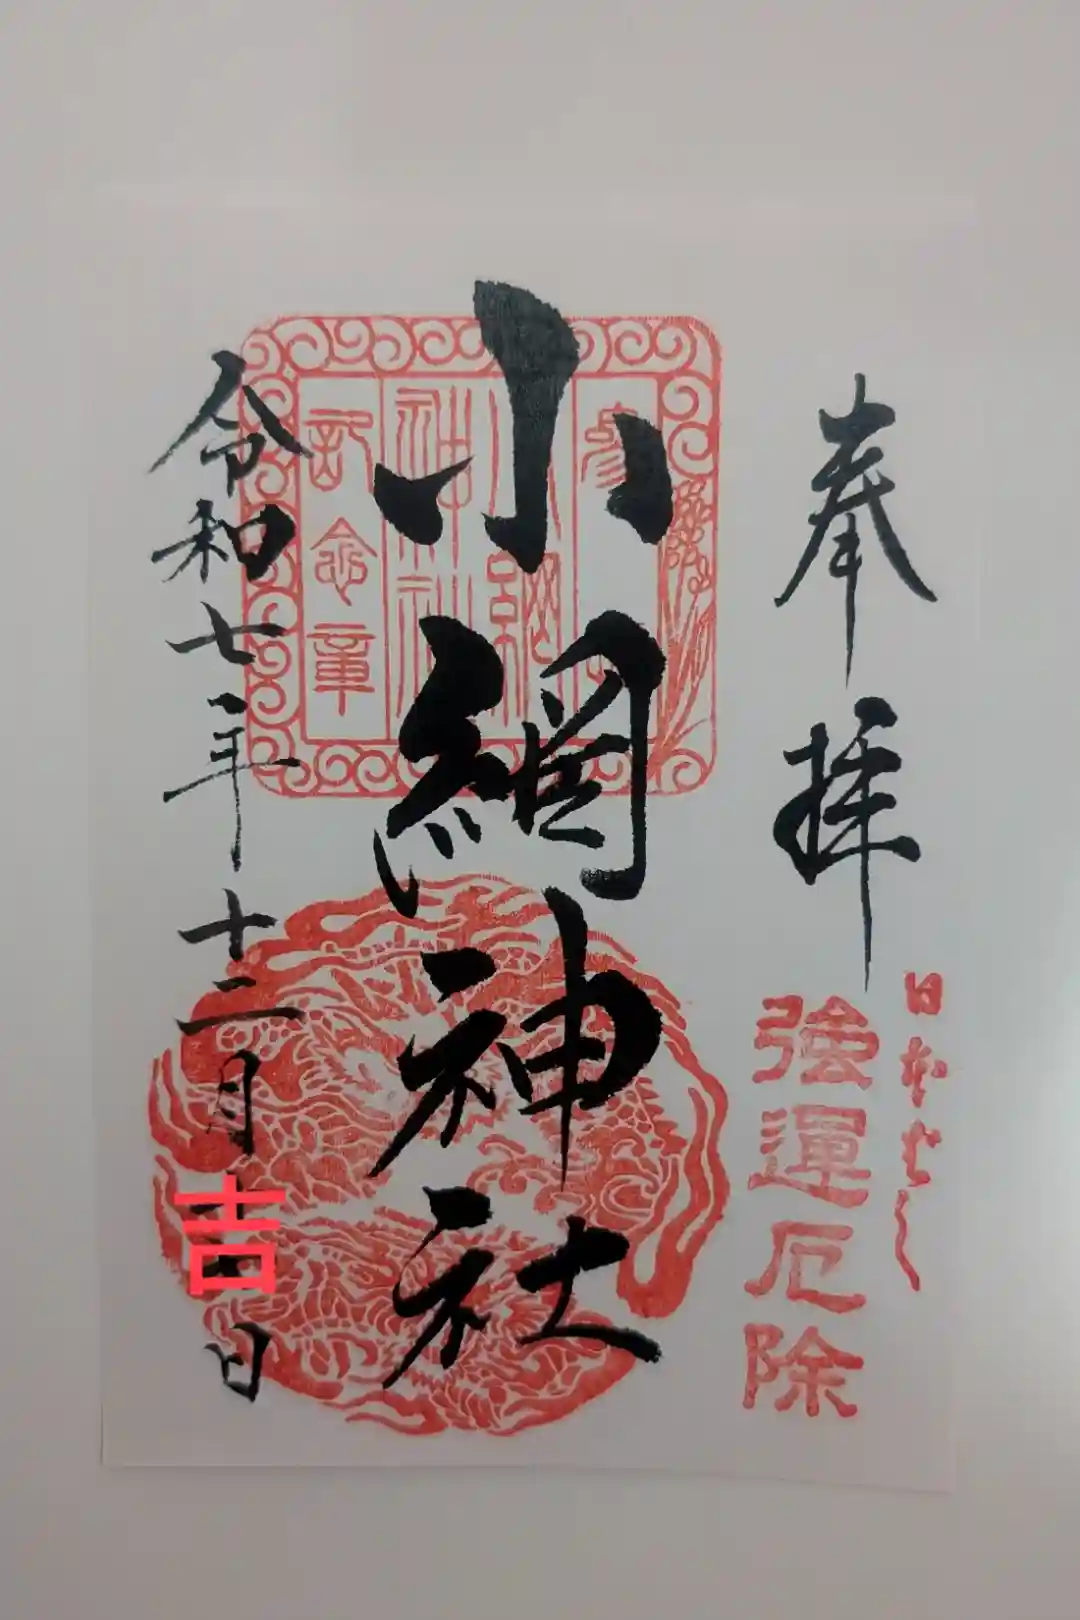 奉拝
日本ばし
強運厄除
小網神社
参
小網
神社
記念章
令和七年十二月吉日